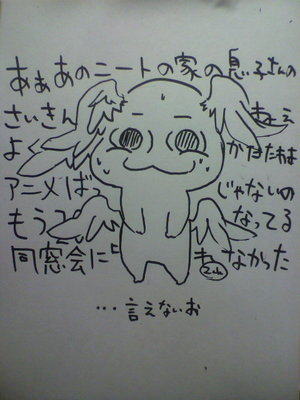 あぁあのニートの家の息子さんの
さいきん ねぇ
よく
アニメばっ じゃないの
もう なってる
同窓会に なかった
2ch
…言えないお